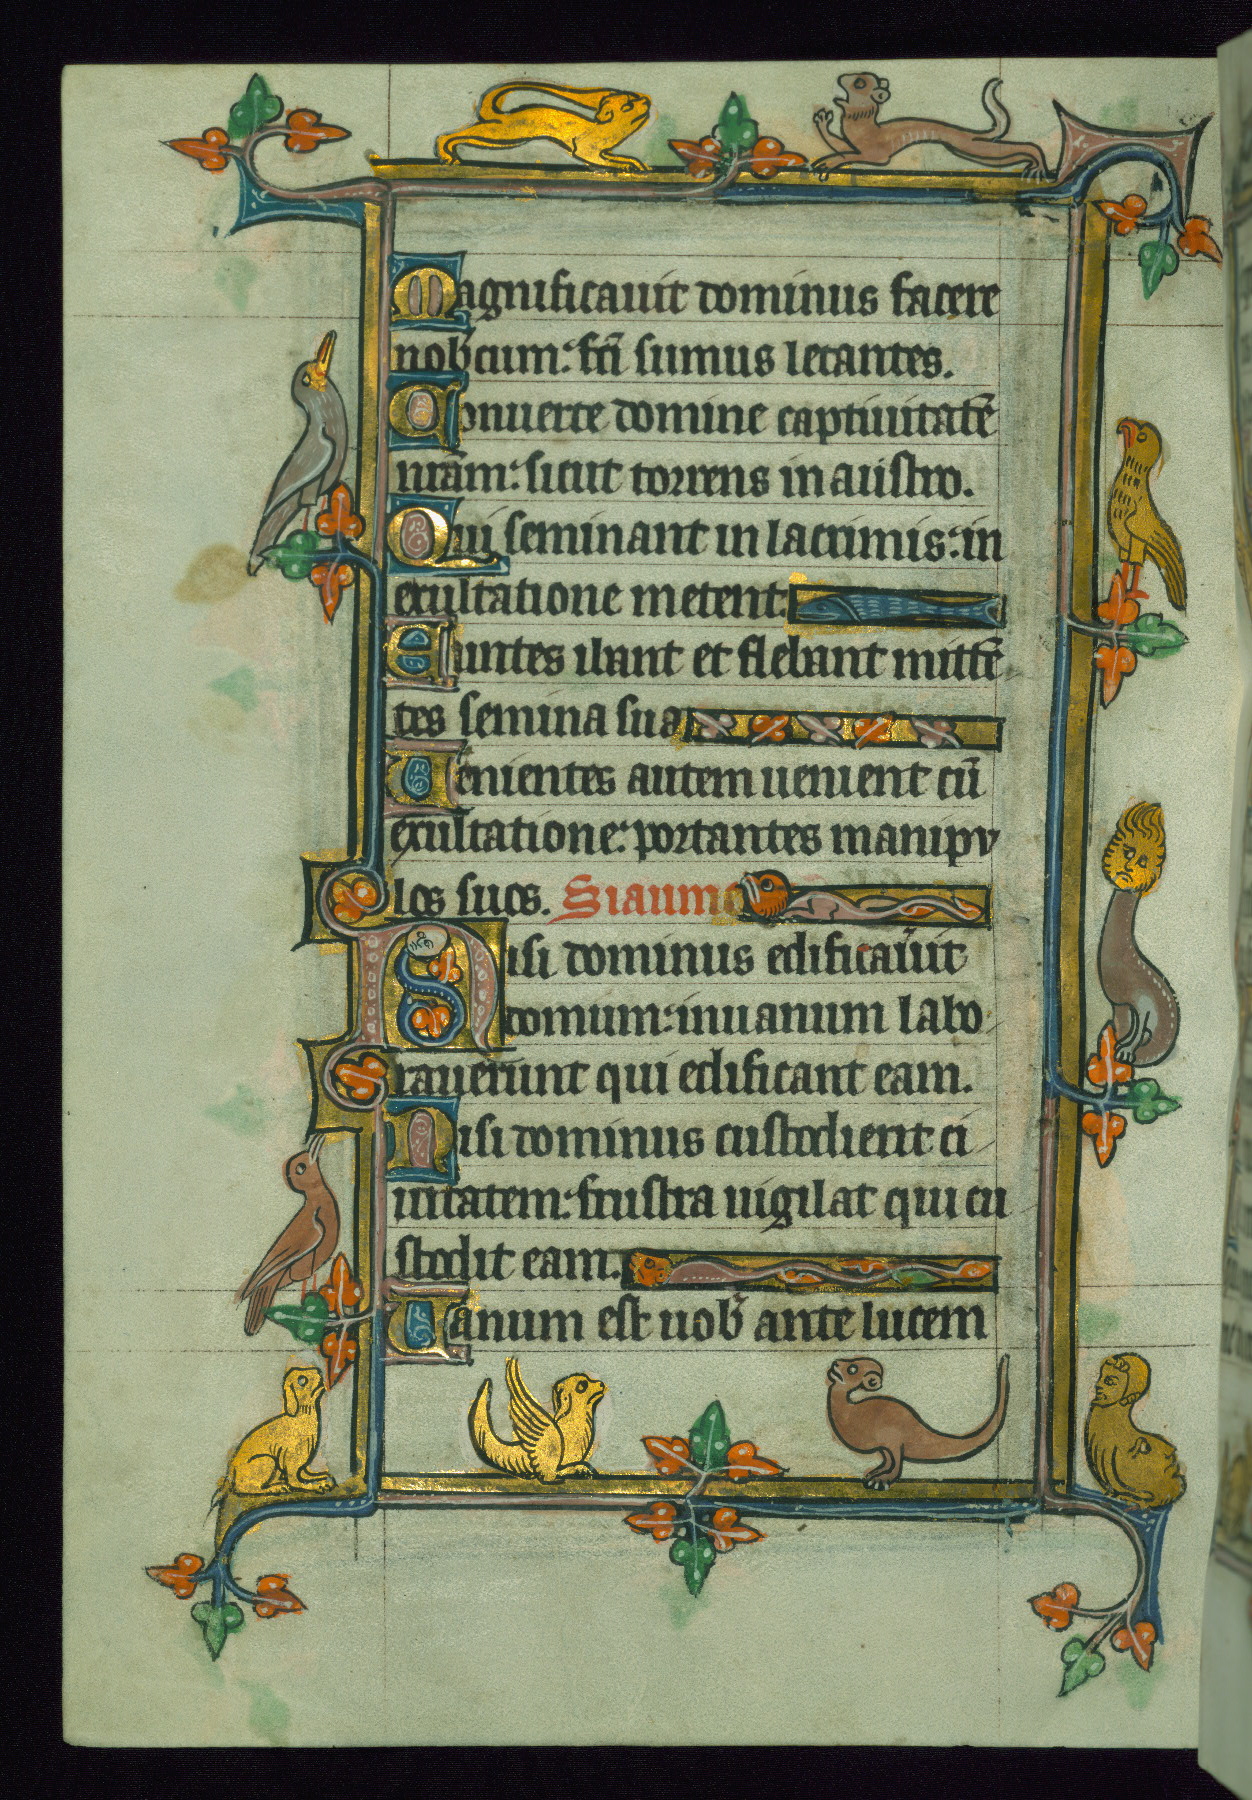 Magnificauit dominus facere
nob̄cum: fc̄i sumus letantes.
Conuerte domine captiuitatē
nrām: sicut torrens in austro.
Qui seminant in lacrimis: in
exultatione metent:
Euntes ibant et flebant mittē
tes semina sua
Uenientes autem uenient cū
exultatione: portantes manipu
los suos. Sicut
Nisi dominus edificauit
domum: inuanum labo
rauerunt qui edificant eam.
Nisi dominus custodierit ci
uitatem: frustra uigilat qui cu
stodit eam.
Uanum est uob̄ ante lucem